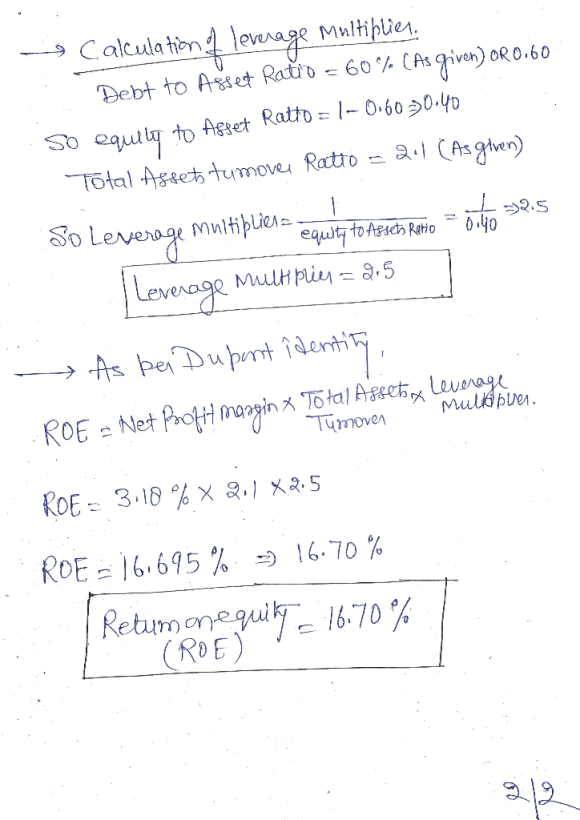 → Calculation of leverage Multiplier.
Debt to Asset Ratio = 60 % (As given) OR 0.60
So equity to Asset Ratio = 1 - 0.60 ⇒ 0.40
Total Assets turnover Ratio = 2.1 (As given)
So Leverage Multiplier = 1 / equity to Assets Ratio = 1 / 0.40 ⇒ 2.5
Leverage Multiplier = 2.5
→ As per Dupont identity,
ROE = Net Profit margin x Total Assets Turnover x Leverage Multiplier.
ROE = 3.18 % x 2.1 x 2.5
ROE = 16.695 % ⇒ 16.70 %
Return on equity = 16.70 %
(ROE)
2/2